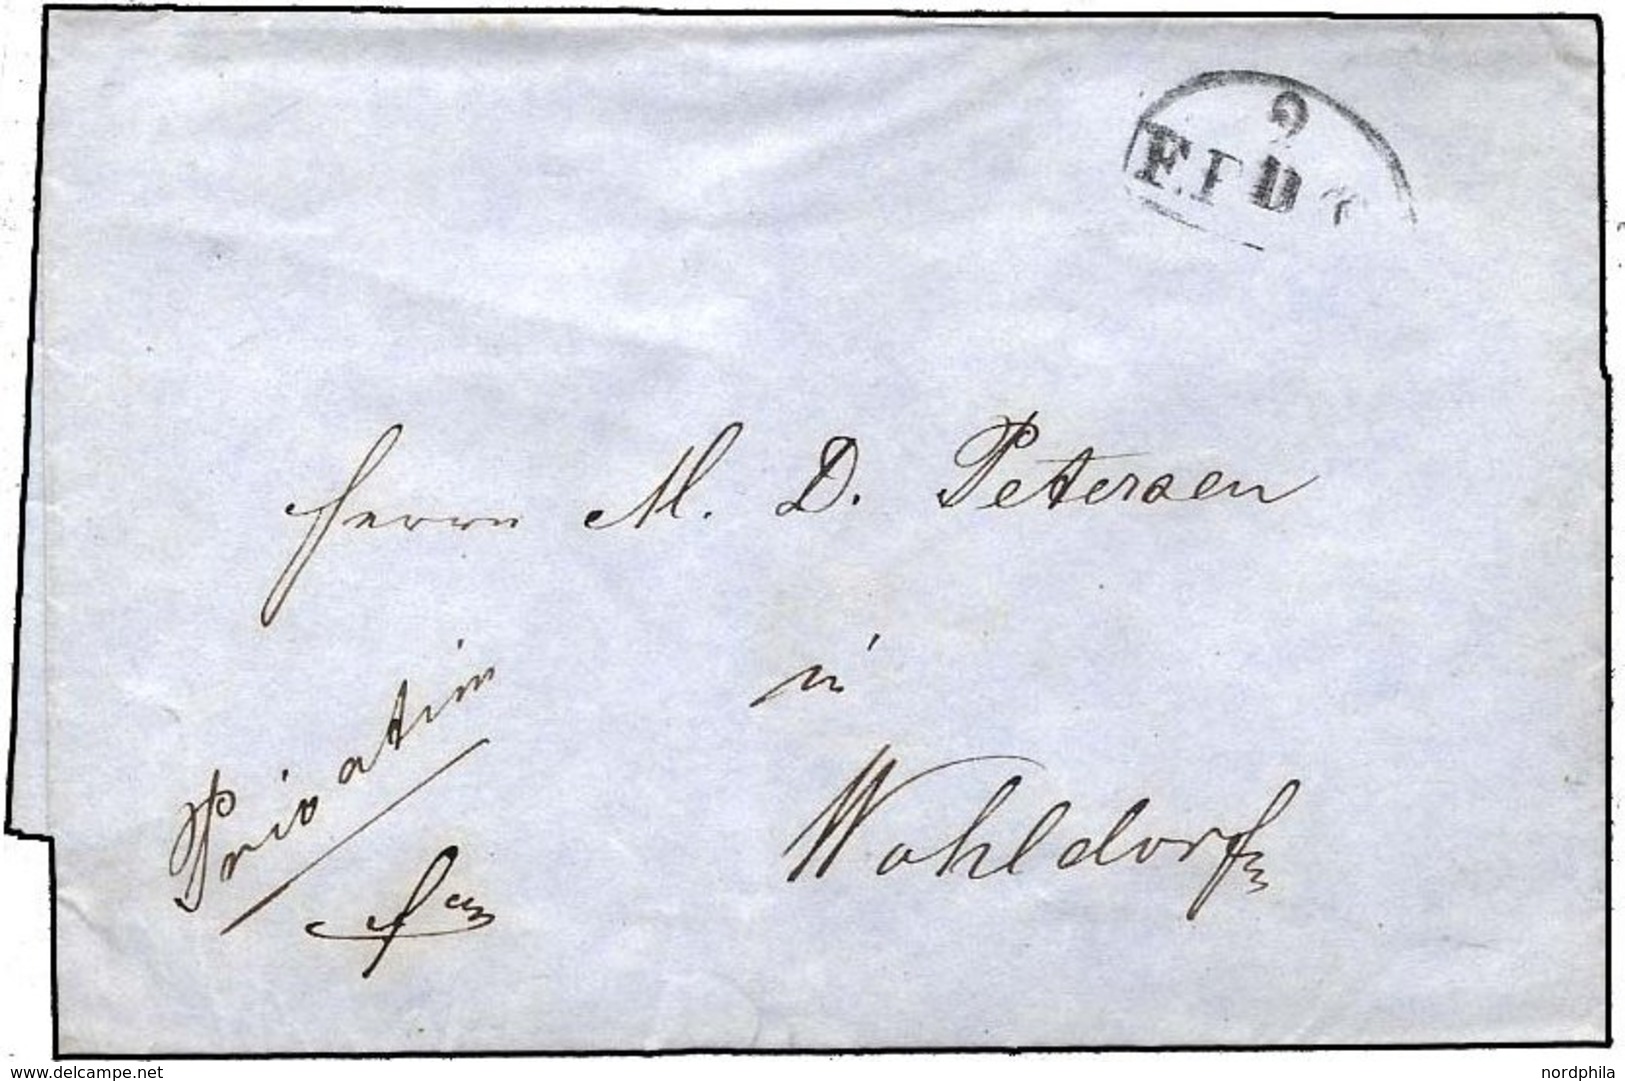 9
F.P.D.
Herrn M. D. Petersen
in
Wohldorf
Privatim
fr
www.delcampe.net
nordphila